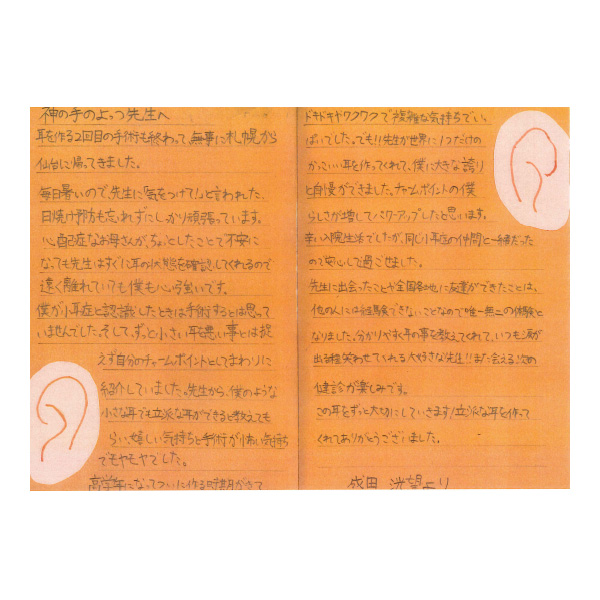 神の手のよっつ先生へ
耳を作る2回目の手術も終わって、無事に札幌から
仙台に帰ってきました。
毎日暑いので、先生に「気をつけて!」と言われた、
日焼け予防も忘れずにしっかり頑張っています。
心配症なお母さんが、ちょっとしたことで不安に
なっても先生はすぐに耳の状態を確認してくれるので
遠く離れていても僕も心強いです。
僕が小耳症と認識したときは手術するとは思って
いませんでした。そして、ずっと小さい耳も悪い事とは捉
えず自分のチャームポイントとしてまわりに
紹介していました。先生から、僕のような
小さな耳でも立派な耳ができると教えても
らい、嬉しい気持ちと手術が怖い気持ち
でモヤモヤでした。
高学年になってついに作る時期がきて
ドキドキワクワクで複雑な気持ちでいっ
ぱいでした。でも!!先生が世界に1つだけの
かっこいい耳を作ってくれて、僕に大きな誇り
と自慢ができました。チャームポイントの僕
らしさが増してパワーアップしたと思います。
辛い入院生活でしたが、同じ小耳症の仲間と一緒だった
ので安心して過ごせました。
先生に出会ったことで全国各地に友達ができたことは、
他の人には経験できないことなので唯一無二の体験と
なりました。分かりやすく耳の事を教えてくれて、いつも涙が
出る程笑わせてくれる大好きな先生!!また会える次の
健診が楽しみです。
この耳をずっと大切にしていきます!立派な耳を作って
くれてありがとうございました。
成田 洸望より